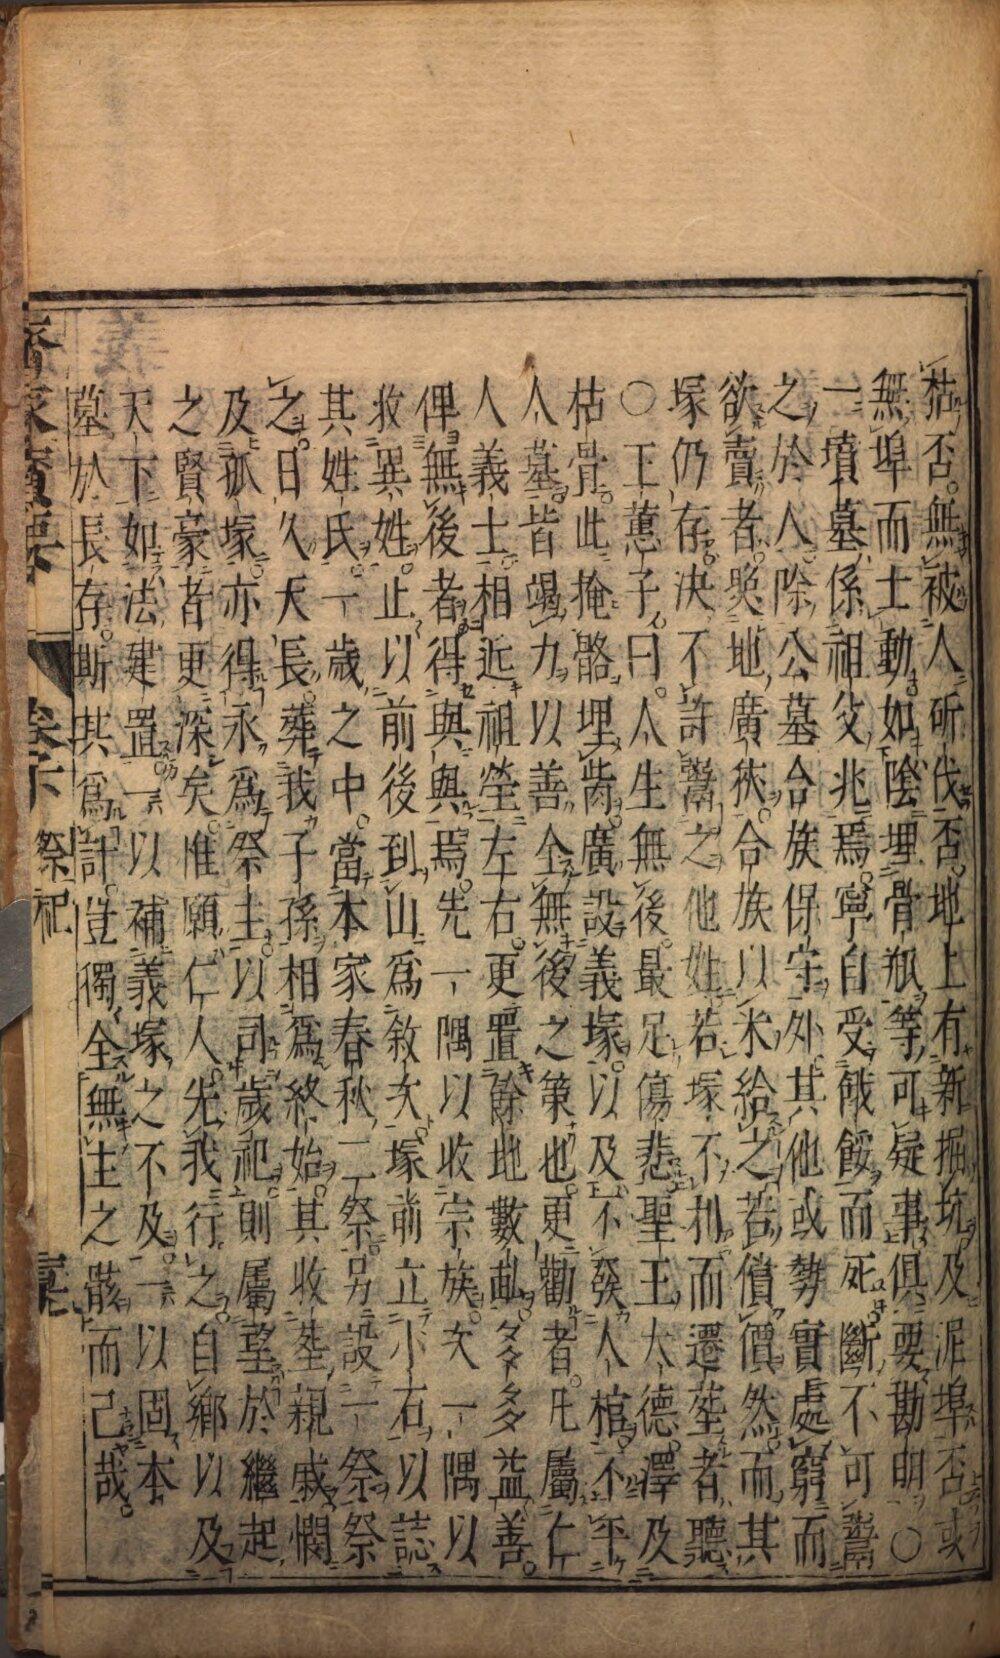 枯否無被人斫伐否地上有新掘坑及泥埠否或
無埠而土動如陰埋骨瓶等可疑事俱要勘明〇
一墳墓係祖父兆焉寧自受餓餒而死斷不可鬻
之於人除公墓合族保守外其他或勢實處窮而
欲賣者喚地廣狹合族以米給之若償價然而其
塚仍存決不許鬻之他姓若塚不利而遷塟者聽
〇王蕙子曰人生無後最足傷悲聖王大德澤及
枯骨此掩骼埋胔廣設義塚以及不發人棺不平
人墓皆竭力以善全無後之策也更勸者凡屬仁
人義士相近祖塋左右更置餘地數畝多多益善
俾無後者得與與焉先一隅以收宗族次一隅以
救異姓止以前後到山為敘次塚前立小石以誌
其姓氏一歲之中當本家春秋二祭另設一祭祭
之日久天長葬我子孫相為終始其收塟親戚憫
及孤塚亦得永為祭主以司歲祀則屬望於繼起
之賢豪者更深矣惟願仁人先我行之自鄉以及
天下如法建置一以補義塚之不及一以固本
墓於長存斯其為計豈獨全無主之骸而已哉
卷下 祭祀